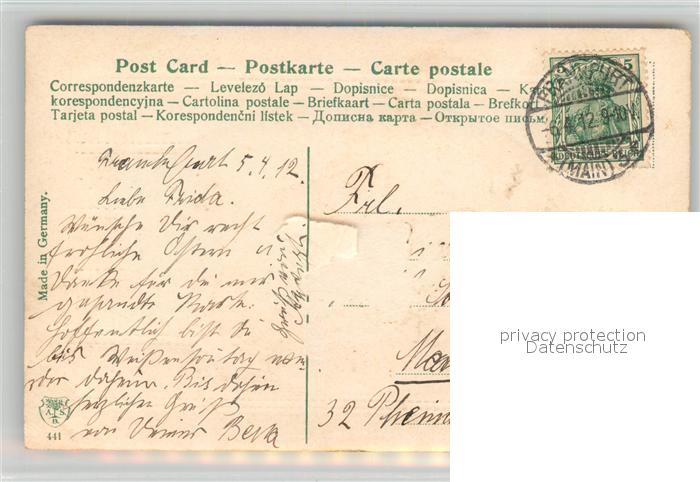 Post Card — Postkarte — Carte postale
Correspondenzkarte — Levelező Lap — Dopisnice — Dopisnica — Ka
korespondencyjna — Cartolina postale — Briefkaart — Carta postala — Brefko
Tarjeta postal — Korespondenční lístek — Дописна карта — Открытое письм
5
FRANKFURT
12.9-10V
(MAIN)
Frankfurt 5.4.12.
Liebe Frida.
Wünsche Dir recht
fröhliche Ostern u.
Danke für die mir
gesandte Karte.
Hoffentlich bist du
bis Weißensonntag wie
der daheim. Bis dahin
herzlichen Gruß
von Deiner
Frl.
32
Made in Germany.
441
privacy protection
Datenschutz